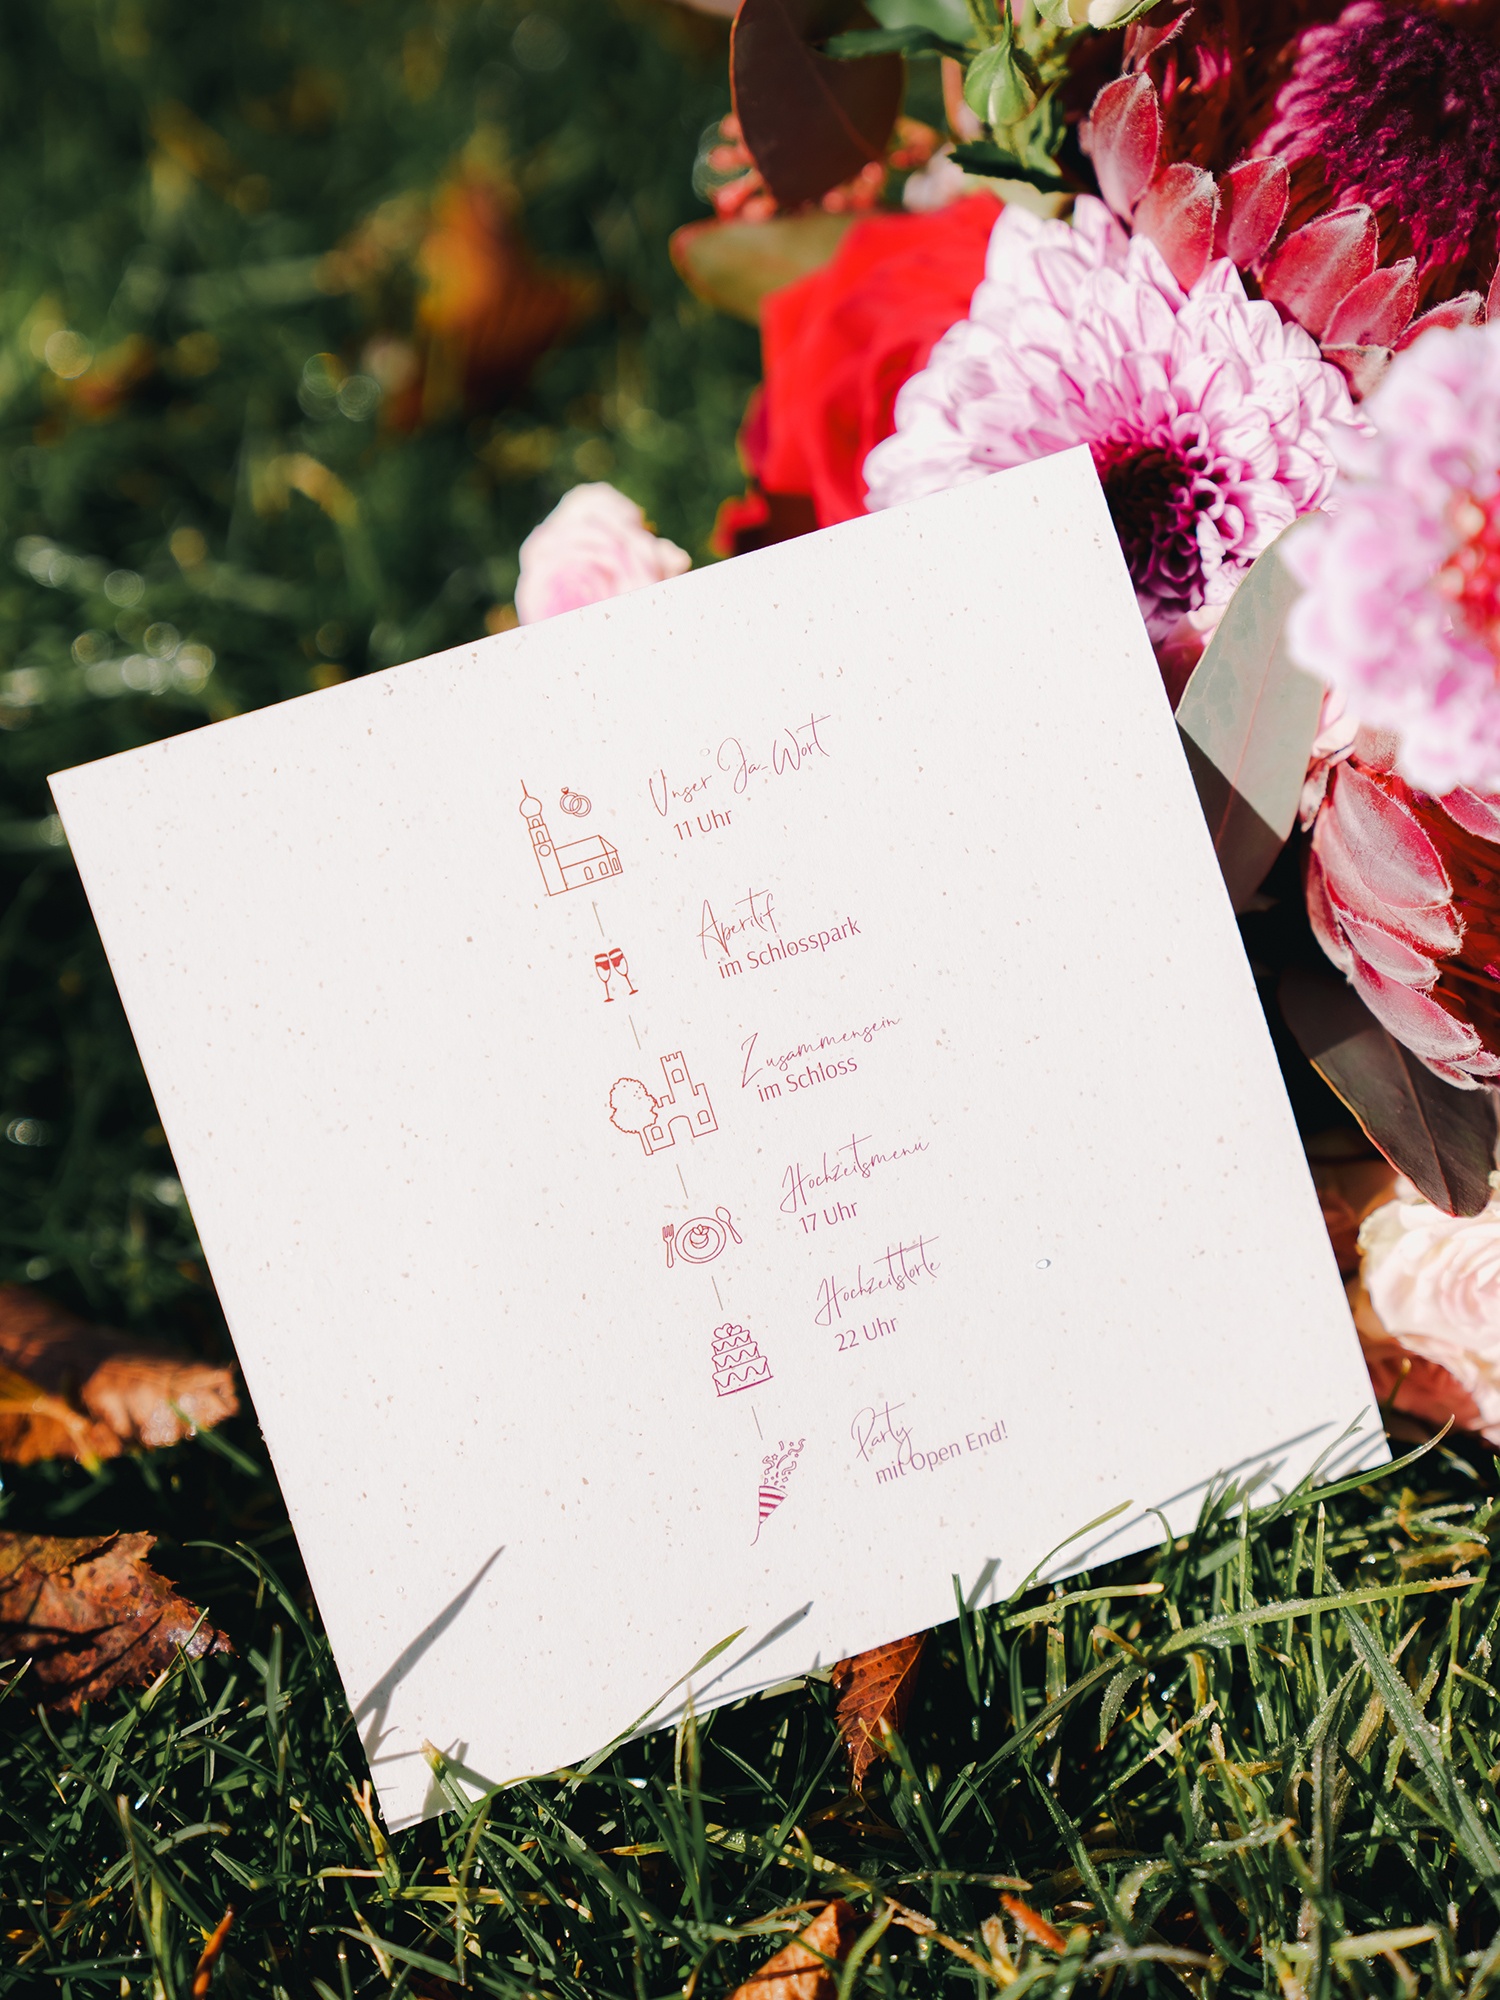 Unser Ja-Wort
11 Uhr
Aperitif
im Schlosspark
Zusammensein
im Schloss
Hochzeitsmenü
17 Uhr
Hochzeitstorte
22 Uhr
Party
mit Open End!